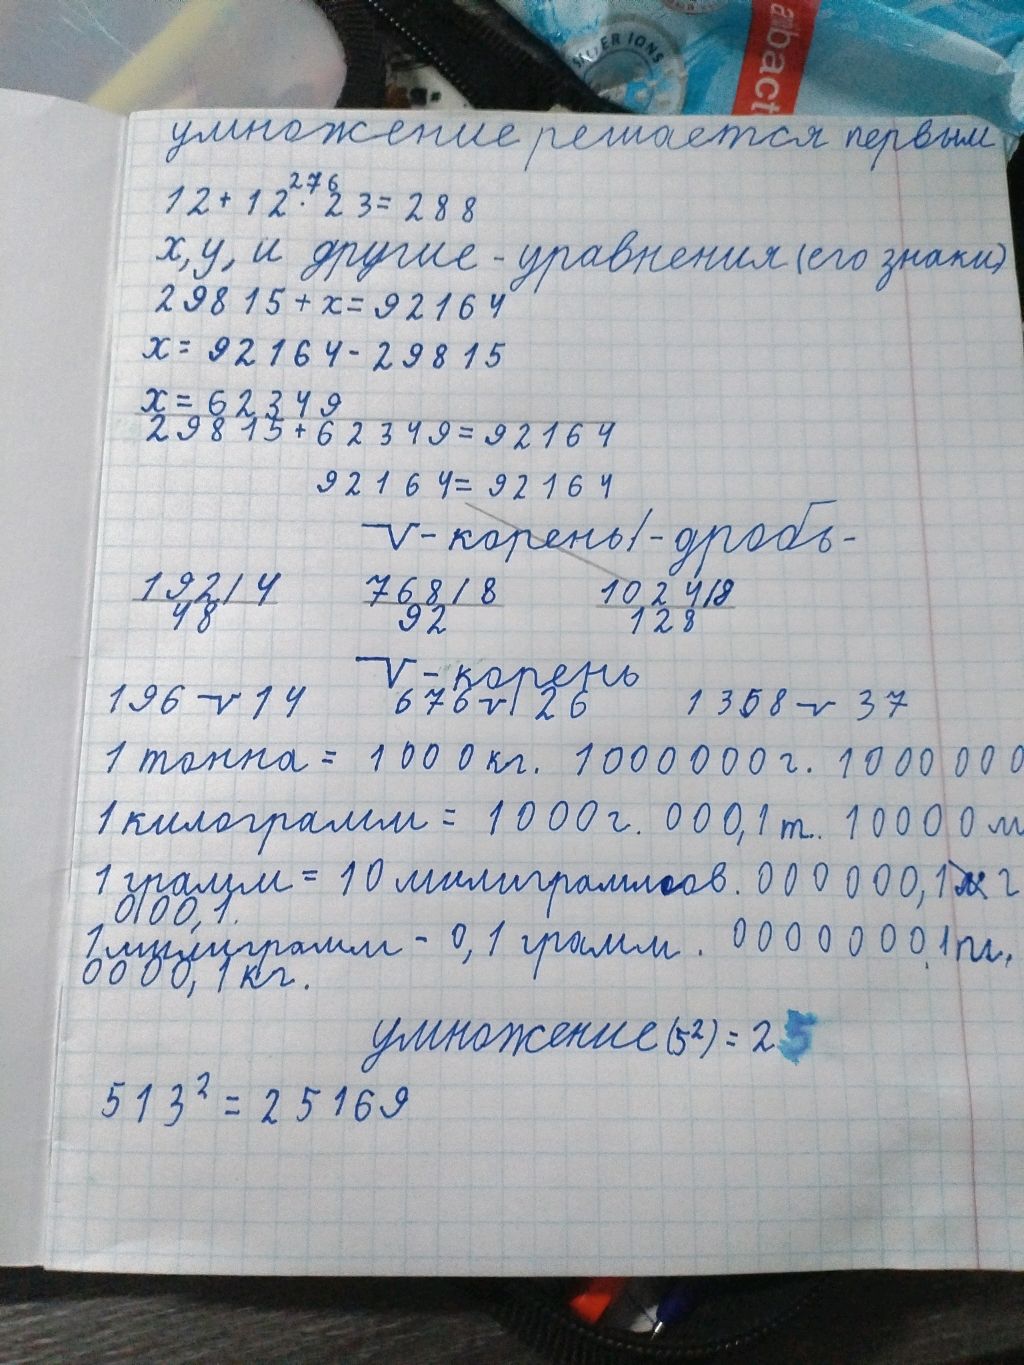 SILVER IONS
abact
умножение решается первым
276
12+12·23=288
x,y, и другие - уравнения (его знаки)
29815+x=92164
x=92164-29815
x=62349
29815+62349=92164
92164=92164
√-корень/-дробь-
192/4 768/8 1024/8
48 92 128
√-корень
196√14 676√26 1358√37
1 тонна = 1000кг. 1000000г. 1000000
1 килограмм = 1000г. 000,1т. 10000м
1 грамм = 10 милиграммов. 000000,1
000,1.
1 милиграмм - 0,1 грамм. 0000000,1
0000,1кг.
умножение(5²)=25
513²=25169